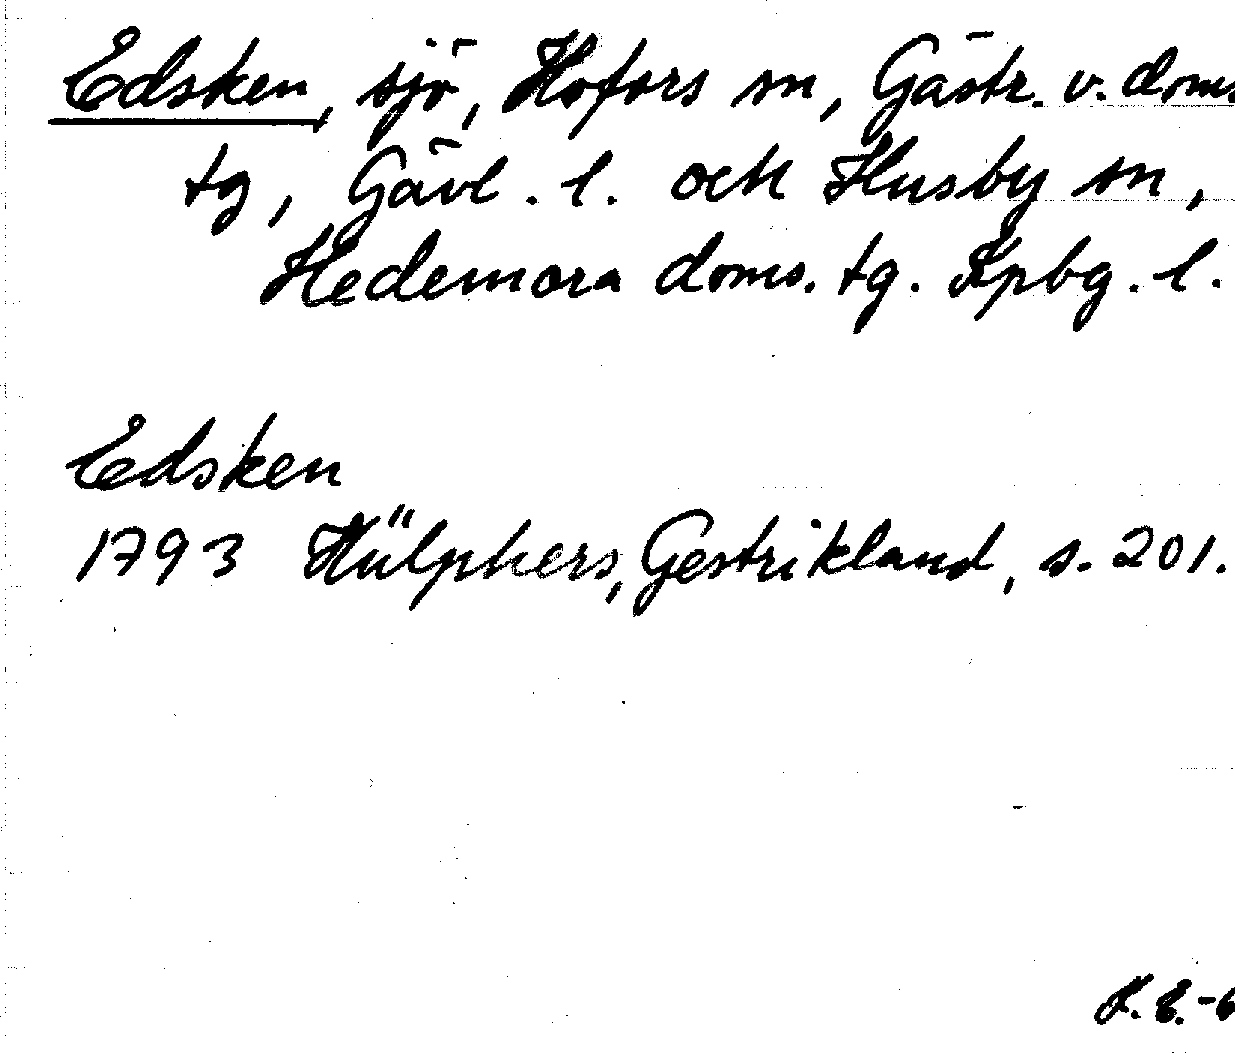 Edsken, sjö, Hofors sn, Gästr. v. doms.
tg, Gävl. l. och Husby sn,
Hedemora doms. tg. Kpbg. l.
Edsken
1793 Hülphers, Gestrikland, s. 201.